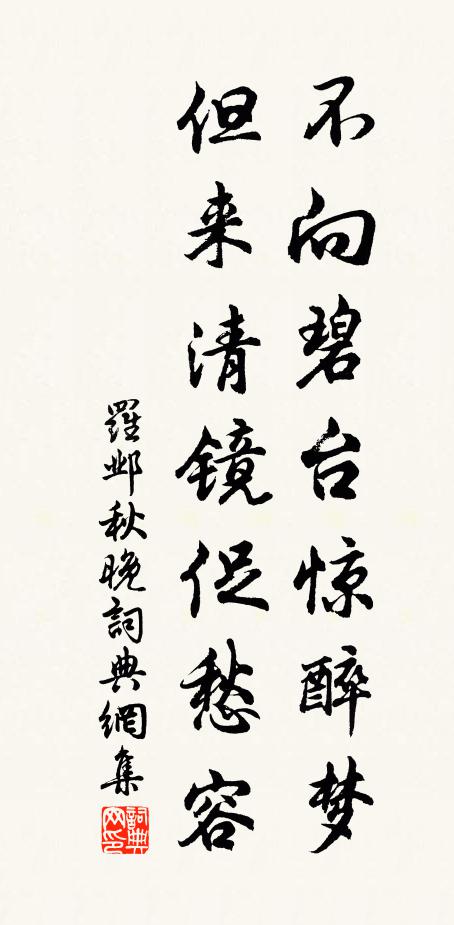 不向碧台惊醉梦
但来清镜促愁容
羅邺秋晚詞典網集
詞典网印